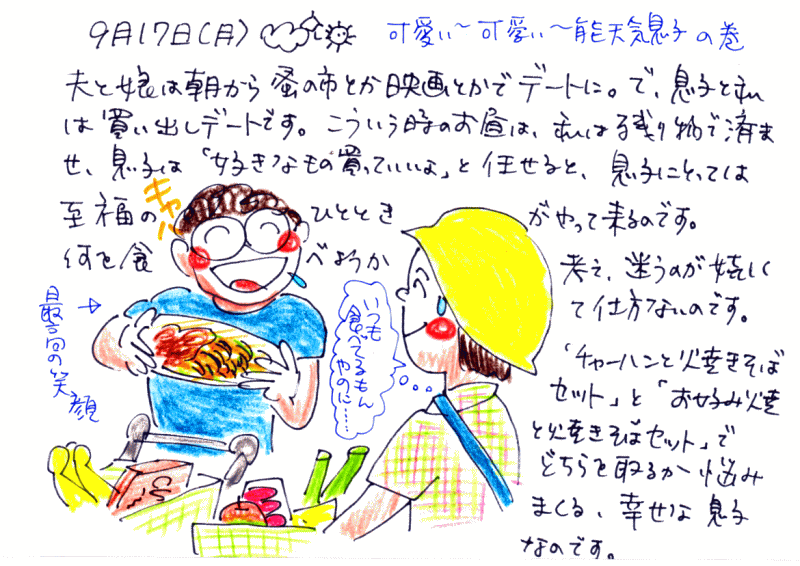 9月17日(月) 可愛い〜可愛い〜能天気息子の巻
夫と娘は朝から蚤の市とか映画とかでデートに。で、息子と私
は買い出しデートです。こういう時のお昼は、私は残り物で済ま
せ、息子は「好きなもの買っていいよ」と任せると、息子にとっては
至福のひとときがやって来るのです。
何を食べようか考え、迷うのが嬉しく
て仕方ないのです。
キャハ
最高の笑顔
いつも
食べてるもん
やのに……
「チャーハンと焼きそば
セット」と「お好み焼
と焼きそばセット」で
どちらを取るか悩み
まくる、幸せな息子
なのです。